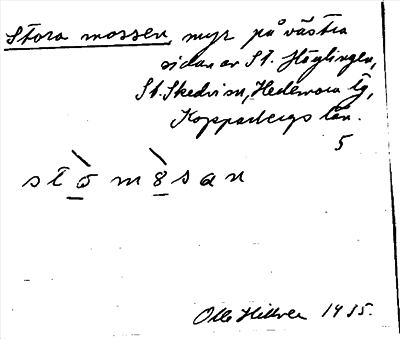 Stora mossen, myr på västra
sidan av St. Höglingen,
St. Skedvi sn, Hedemora tg,
Kopparbergs län.
5
stō m8san
Olle Hillver 1935.